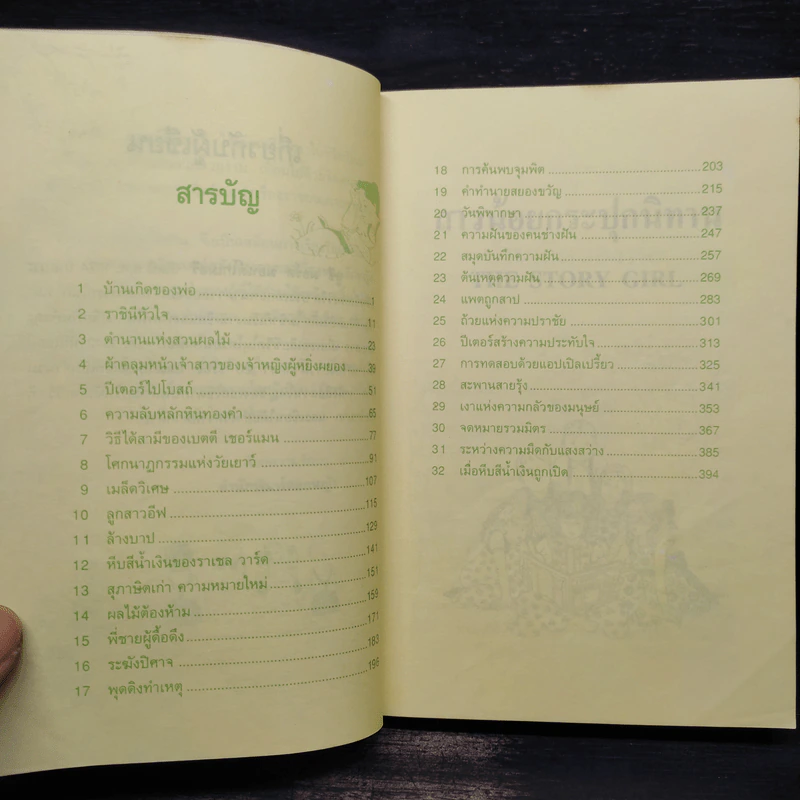 สารบัญ
1 บ้านเกิดของพ่อ 1
2 ราชินีหัวใจ 11
3 ตำนานแห่งสวนผลไม้ 23
4 ผ้าคลุมหน้าเจ้าสาวของเจ้าหญิงผู้หยิ่งผยอง 39
5 ปีเตอร์ไปโบสถ์ 51
6 ความลับหลักหินทองคำ 65
7 วิธีได้สามีของเบตตี เชอร์แมน 77
8 โศกนาฏกรรมแห่งวัยเยาว์ 91
9 เมล็ดวิเศษ 107
10 ลูกสาวอีฟ 115
11 ล้างบาป 129
12 หีบสีน้ำเงินของราเชล วาร์ด 141
13 สุภาษิตเก่า ความหมายใหม่ 151
14 ผลไม้ต้องห้าม 159
15 พี่ชายผู้ดื้อดึง 171
16 ระฆังปิศาจ 183
17 พุดดิงทำเหตุ 196
18 การค้นพบจุมพิต 203
19 คำทำนายสยองขวัญ 215
20 วันพิพากษา 237
21 ความฝันของคนช่างฝัน 247
22 สมุดบันทึกความฝัน 257
23 ต้นเหตุความฝัน 269
24 แพตถูกสาป 283
25 ถ้วยแห่งความปราชัย 301
26 ปีเตอร์สร้างความประทับใจ 313
27 การทดสอบด้วยแอปเปิลเปรี้ยว 325
28 สะพานสายรุ้ง 341
29 เงาแห่งความกลัวของมนุษย์ 353
30 จดหมายรวมมิตร 367
31 ระหว่างความมืดกับแสงสว่าง 385
32 เมื่อหีบสีน้ำเงินถูกเปิด 394